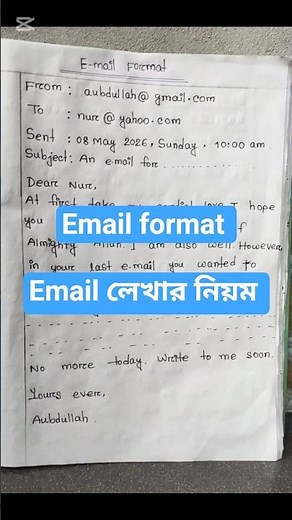 CapCut
E-mail Format
From : aubdullah@gmail.com
To : nur@yahoo.com
Sent : 08 May 2026, Sunday, 10:00 am.
Subject: An e-mail for ..........
Dear Nur,
At first take my cordial love. I hope
you
Email format
Almighty Allah. I am also well. However,
in your last e-mail you wanted to
Email লেখার নিয়ম
No more today. Write to me soon.
Yours ever,
Aubdullah.